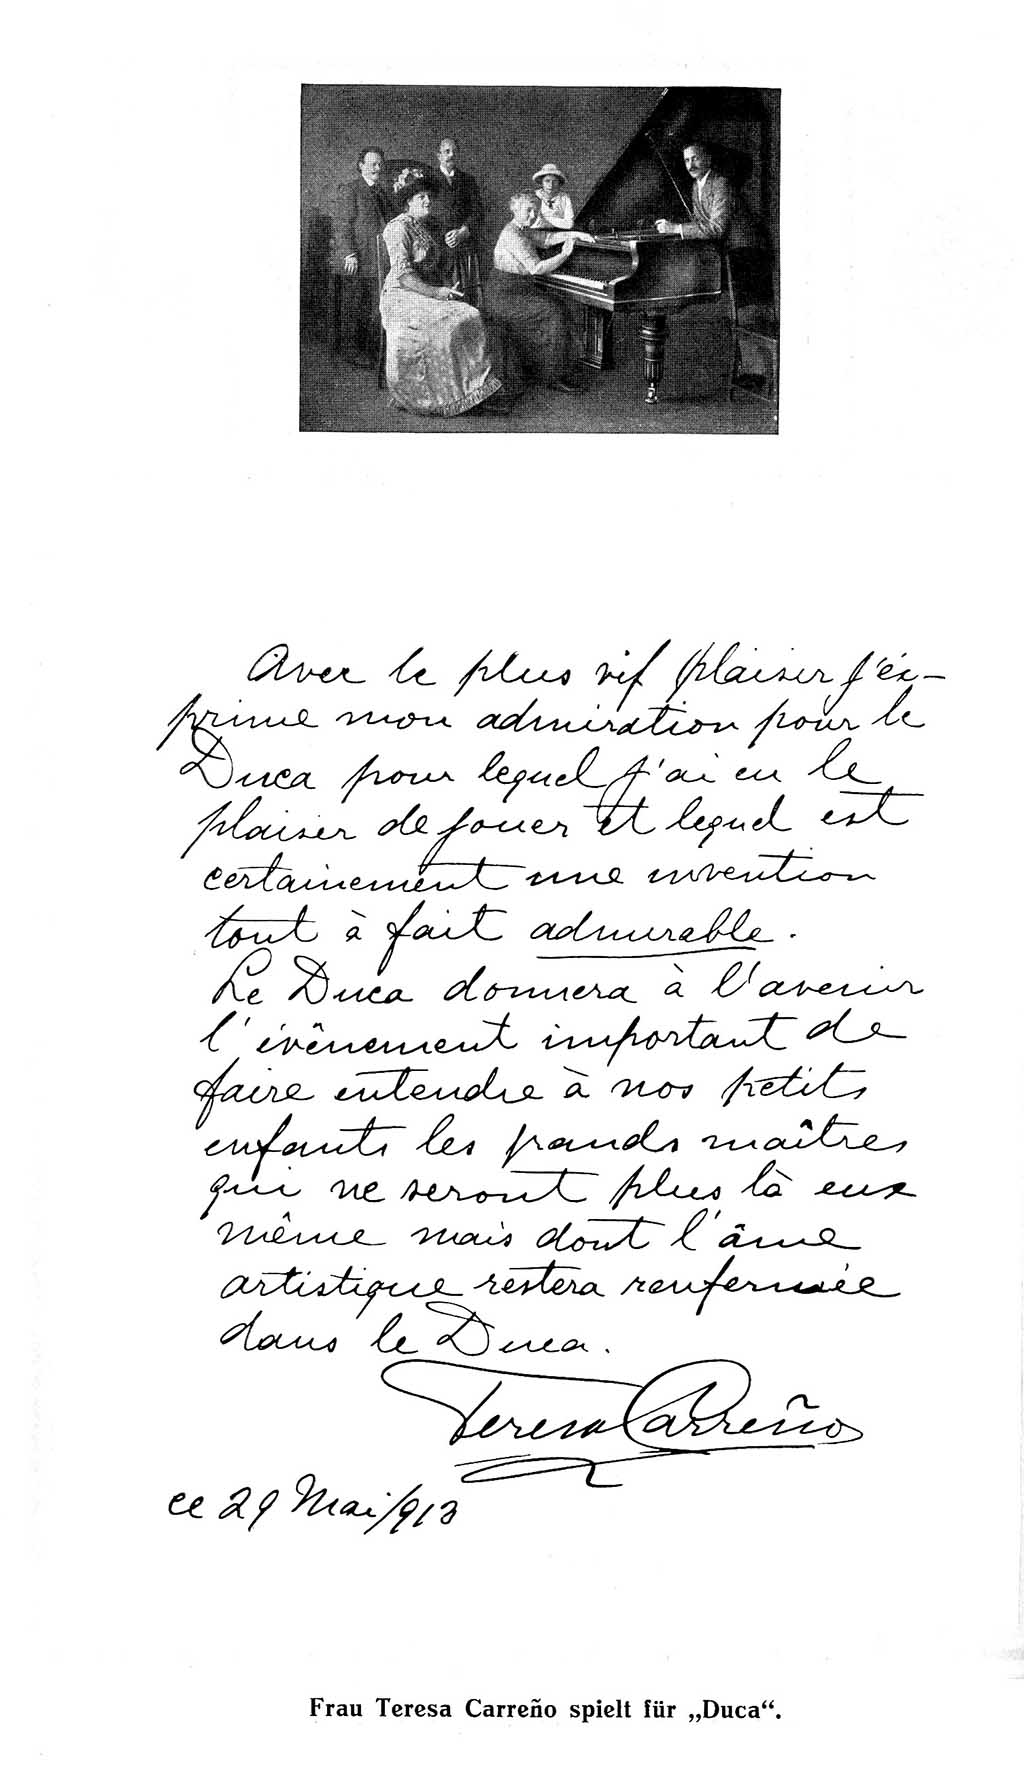 Avec le plus vif plaisir j'ex-
prime mon admiration pour le
Duca pour lequel j'ai eu le
plaisir de jouer et lequel est
certainement une invention
tout à fait admirable.
Le Duca donnera à l'avenir
l'évênement important de
faire entendre à nos petits
enfants les grands maîtres
qui ne seront plus là eux
même mais dont l'âme
artistique restera renfermée
dans le Duca.
Teresa Carreño
ce 29 Mai/913
Frau Teresa Carreño spielt für „Duca“.